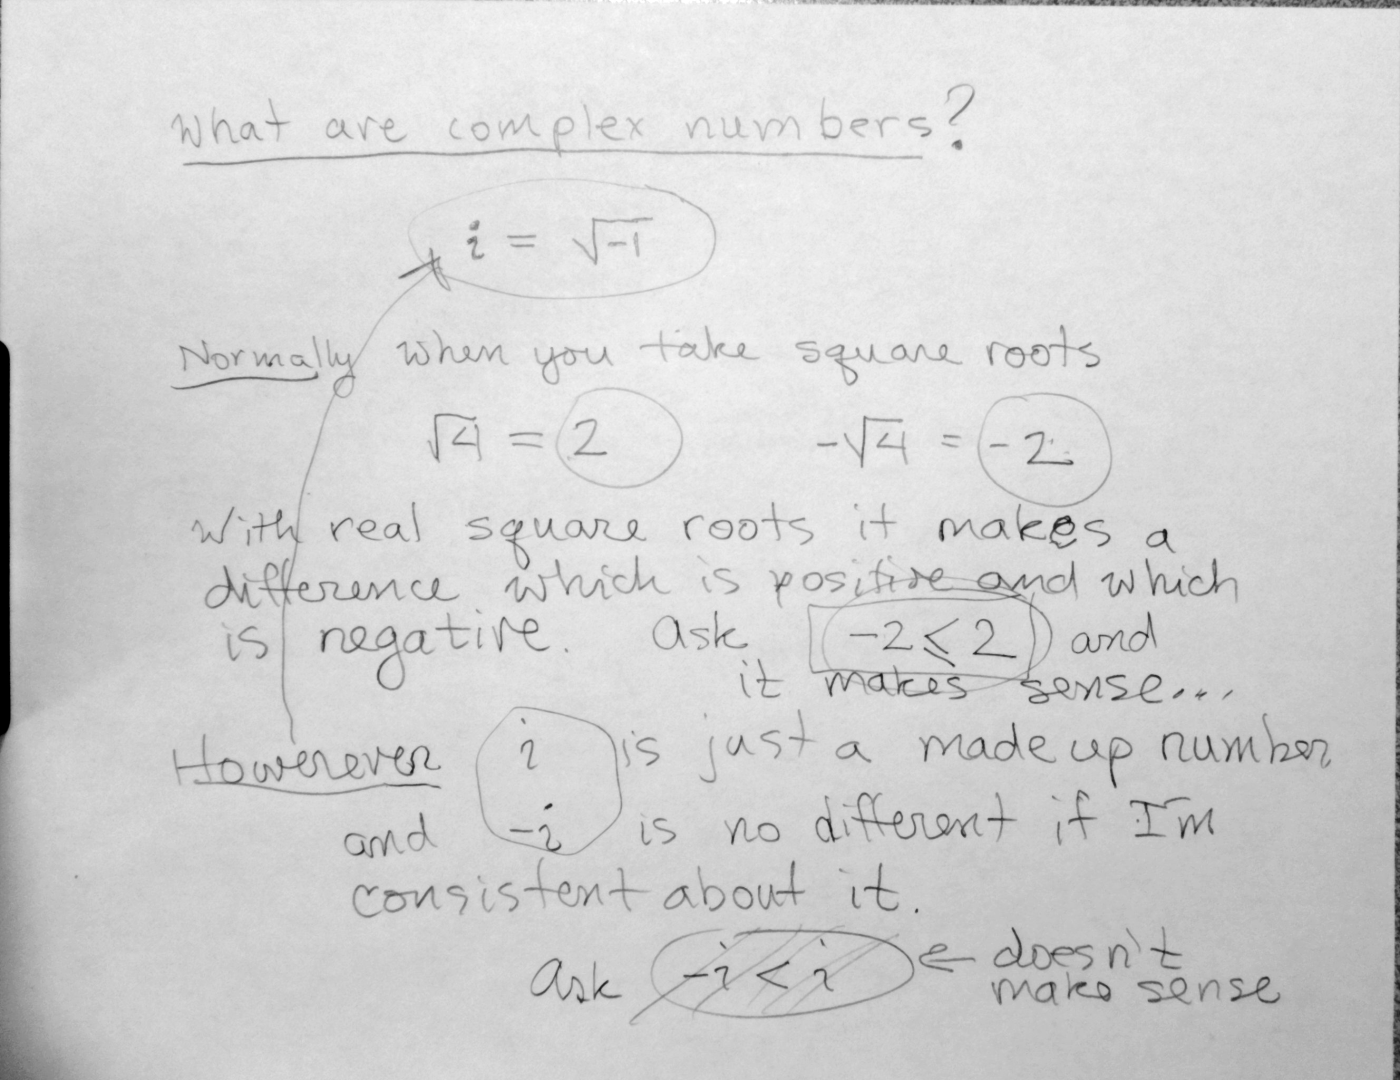 What are complex numbers?
i = √-1
Normally when you take square roots
√4 = 2 -√4 = -2
With real square roots it makes a
difference which is positive and which
is negative. Ask -2 ≤ 2 and
it makes sense...
Howerever i is just a made up number
and -i is no different if I'm
consistent about it.
Ask -i < i ← doesn't
make sense